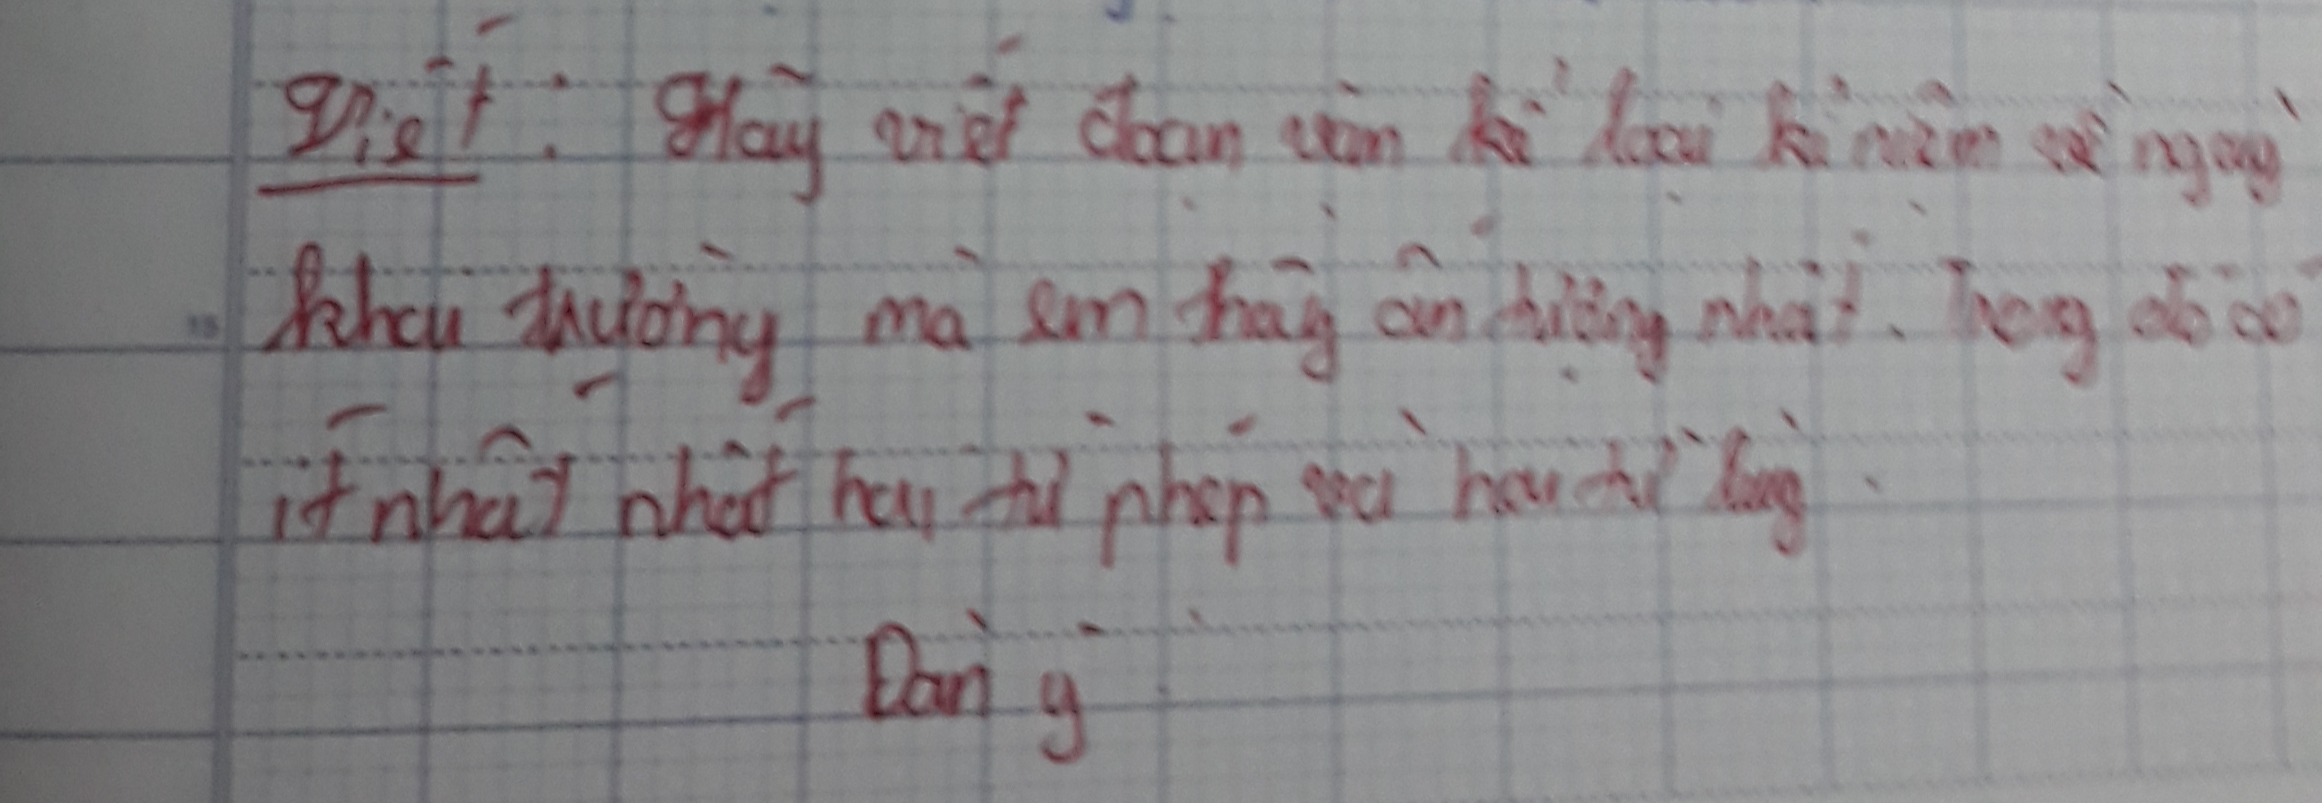 Viết : Hãy viết đoạn văn kể loại kỉ niệm về ngày
khai trường mà em thấy ấn tượng nhất. Trong đó có
ít nhất nhất hai từ phép và hai từ láy.
Dàn ý